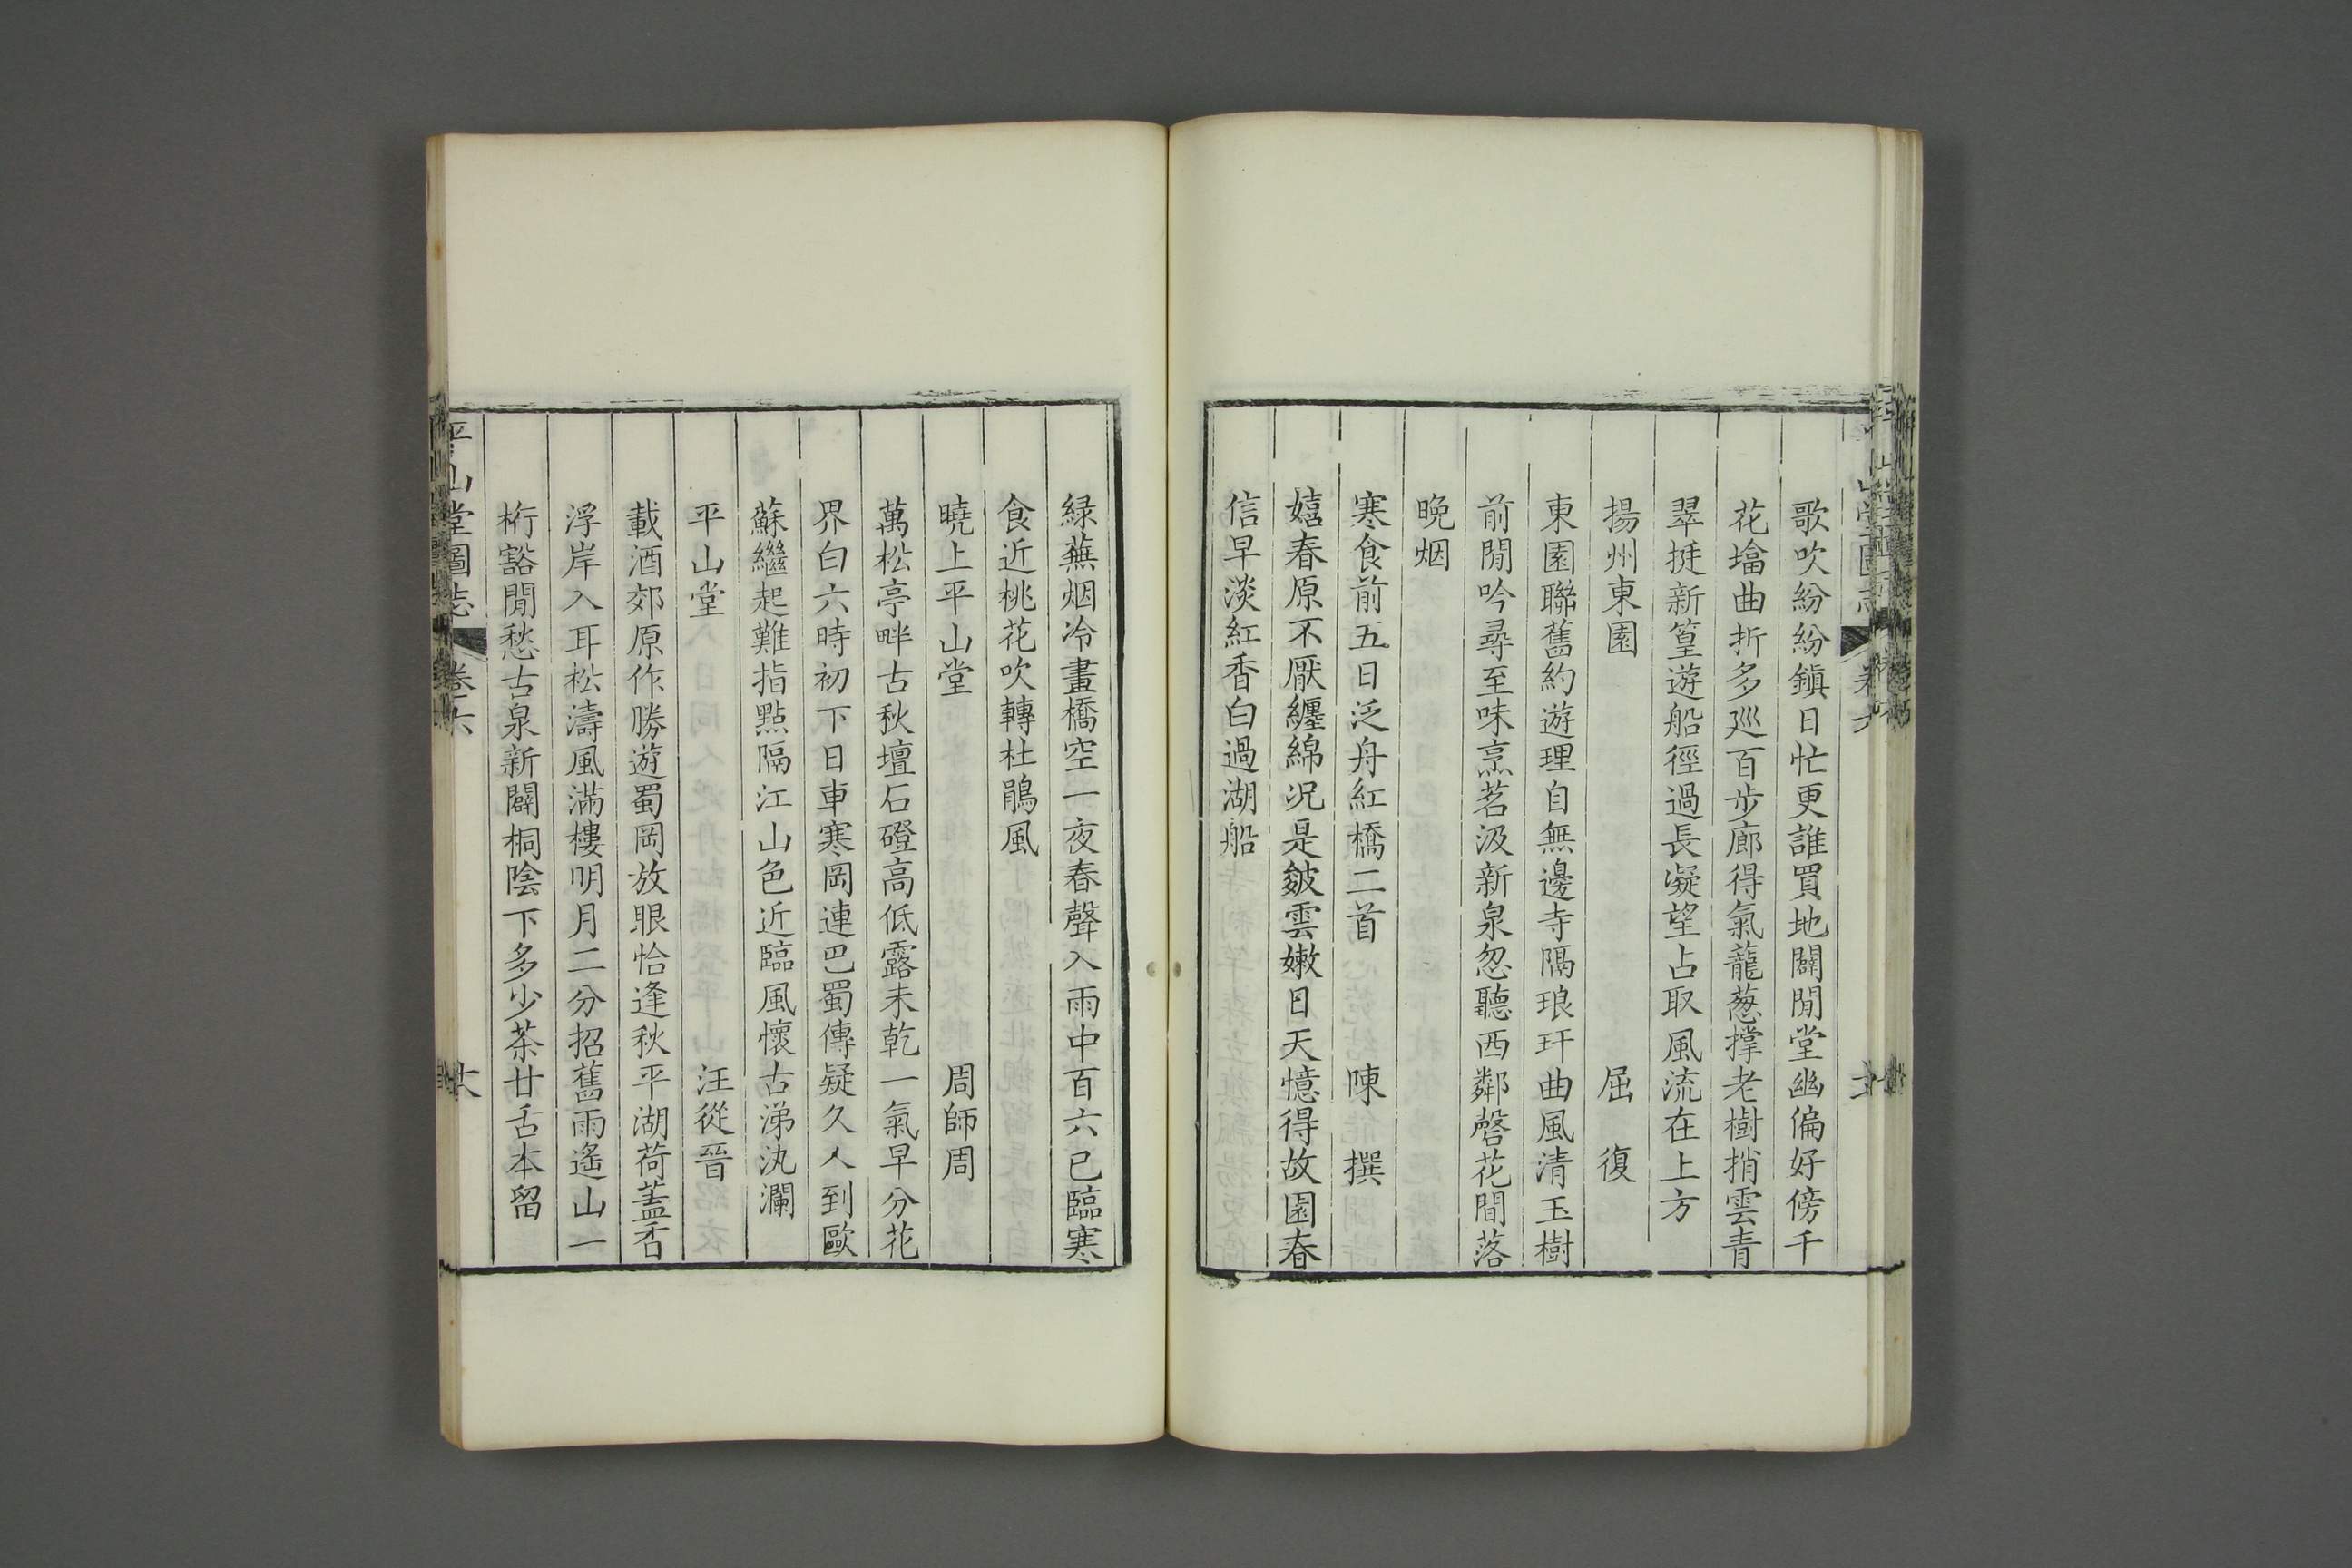 歌吹紛紛鎮日忙更誰買地闢閒堂幽偏好傍千
花墖曲折多廵百步廊得氣蘢葱撑老樹捎雲青
翠挺新篁遊船徑過長凝望占取風流在上方
揚州東園 屈復
東園聯舊約遊理自無邊寺隔琅玕曲風清玉樹
前閒吟尋至味烹茗汲新泉忽聽西鄰磬花間落
晚烟
寒食前五日泛舟紅橋二首 陳撰
嬉春原不厭纏綿况是皴雲嫩日天憶得故園春
信早淡紅香白過湖船
緑蕪烟冷畫橋空一夜春聲入雨中百六已臨寒
食近桃花吹轉杜鵑風
曉上平山堂 周師周
萬松亭畔古秋壇石磴高低露未乾一氣早分花
界白六時初下日車寒岡連巴蜀傳疑久人到歐
蘇繼起難指點隔江山色近臨風懷古涕汍瀾
平山堂 汪從晉
載酒郊原作勝遊蜀岡放眼恰逢秋平湖荷蓋香
浮岸入耳松濤風滿樓明月二分招舊雨遙山一
桁豁閒愁古泉新闢桐陰下多少茶廿舌本留
平山堂圖志 卷六